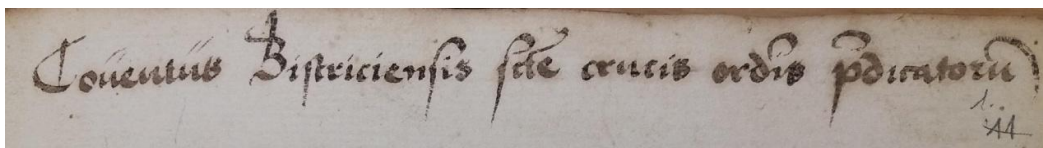 Cōuentus Bistriciensis scte crucis ordīs p̄dicatorū
1.
44